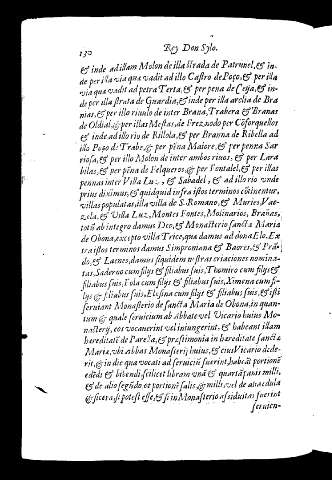 130 Rey Don Sylo.
& inde ad illam Molon de illa strada de Patrunel, & in-
de per illa via qua vadit ad illo Castro de Poço, & per illa
via qua vadit ad petra Terta, & per pena de Ceija, & in-
de per illa strata de Guardia, & inde per illa arelia de Bra
nias, & per illo riuulo de inter Brana, Trabera & Branas
de Oldial, & per illas Mestas de Freznodo per Coferquellos
& inde ad illo rio de Rillola, & per Branna de Ribella ad
illo Poço de Trabe, & per pēna Maiore, & per penna Sar
riosa, & per illo Molon de inter ambos riuos, & per Lara
bilas, & per pēna de Felgueros, & per Fontalel, & per illas
pennas inter Villa Luz, & Sabadel, & ad illo rio vnde
prius diximus, & quidquid infra istos terminos cōtinentur,
villas populatas, illa villa de S. Romano, & Muries Vae-
zela, & Villa Luz, Montes Fontes, Molinarios, Brañas,
totū ab integro damus Deo, & Monasterio sanctæ Maria
de Obona, excepto villa Trice, qua damus ad dona Eļo. Ex
tra istos terminos damus Sinprontana & Baores, & Pra-
do, & Laenes, damus siquidem nostras criationes nomina-
tas, Saderno cum filijs & filiabus suis, Thomiro cum filijs &
filiabus suis, Fofa cum filijs & filiabus suis, Ximena cum fi-
lijs & filiabus suis, Eļosina cum filijs & filiabus suis, & isti
seruiant Monasterio de sancta Maria de Obona in quan-
tum & quale seruitium ab Abbate vel Vicario huius Mo-
nasterij, eos vocauerint vel iniungerint, & habeant illam
hereditatē de Parella, & præstimonia in hereditate sanctæ
Maria, vbi Abbas Monasterij huius, & eius Vicario dede-
rit, & in die qua vocati ad seruitiū fuerint, habeāt portionē
edēdi & bibendi, scilicet libram vnā & quartā panis milli,
& de alio segūdo et portionē falis, & milli, vel de anaedula
& sicera, si potest esse, & si in Monasterio assiduitas fuerint
seruien-